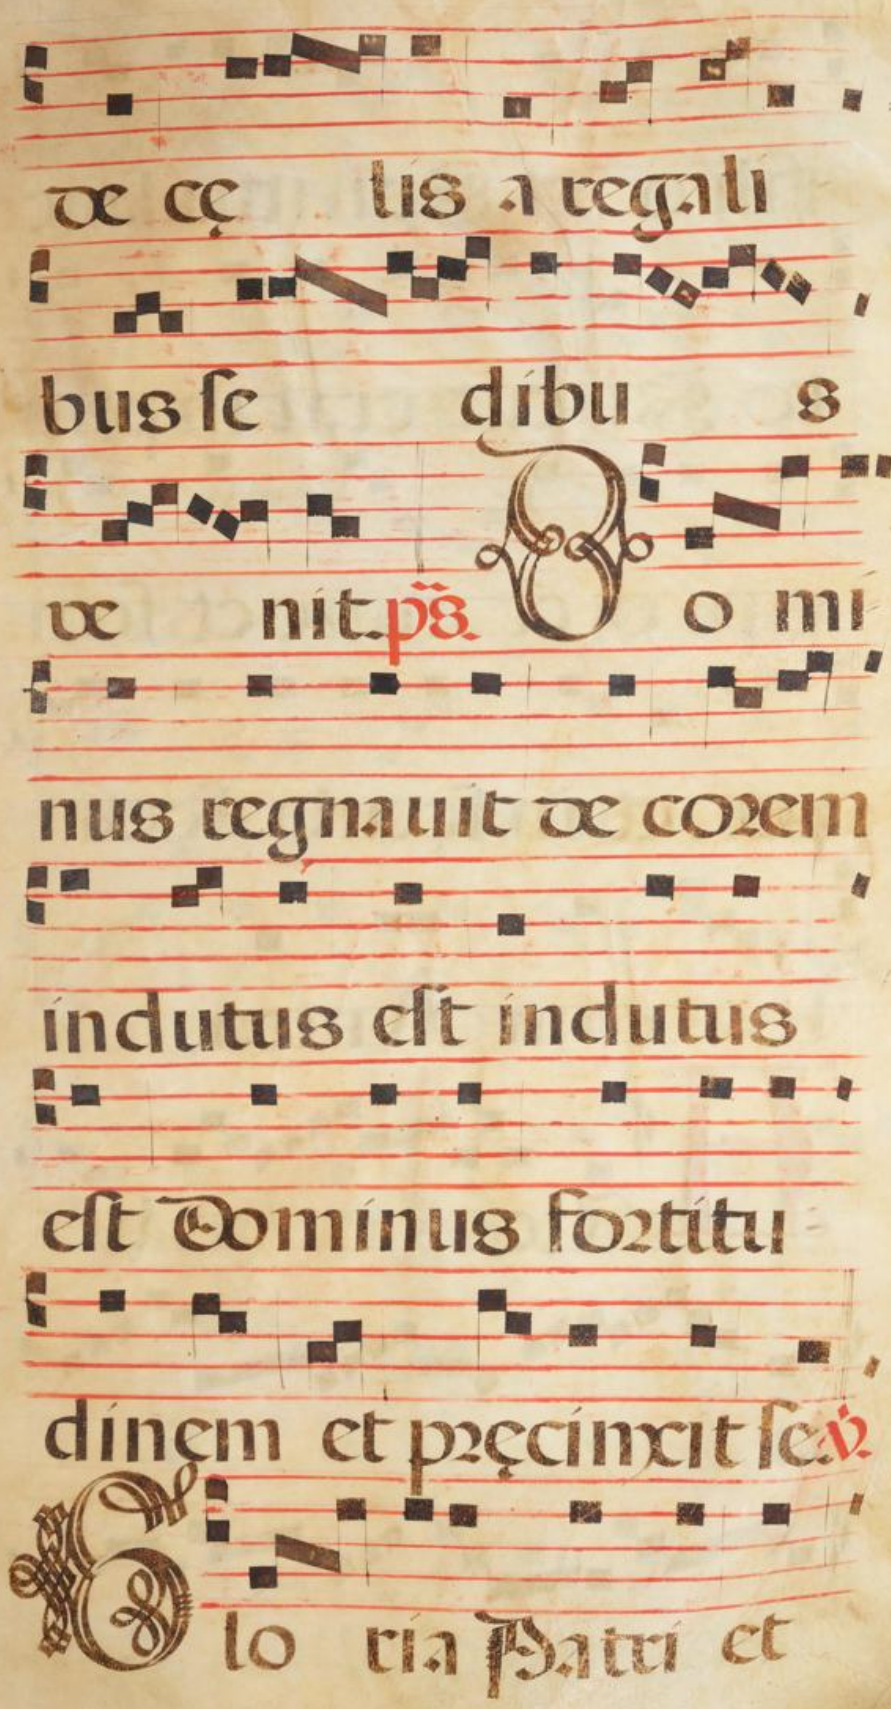 de cę lis a regali
bus se dibu s
ve nit. ps. D o mi
nus regnauit de corem
indutus est indutus
est Dominus fortitu
dinem et pręcinxit se. v.
G lo ria Patri et